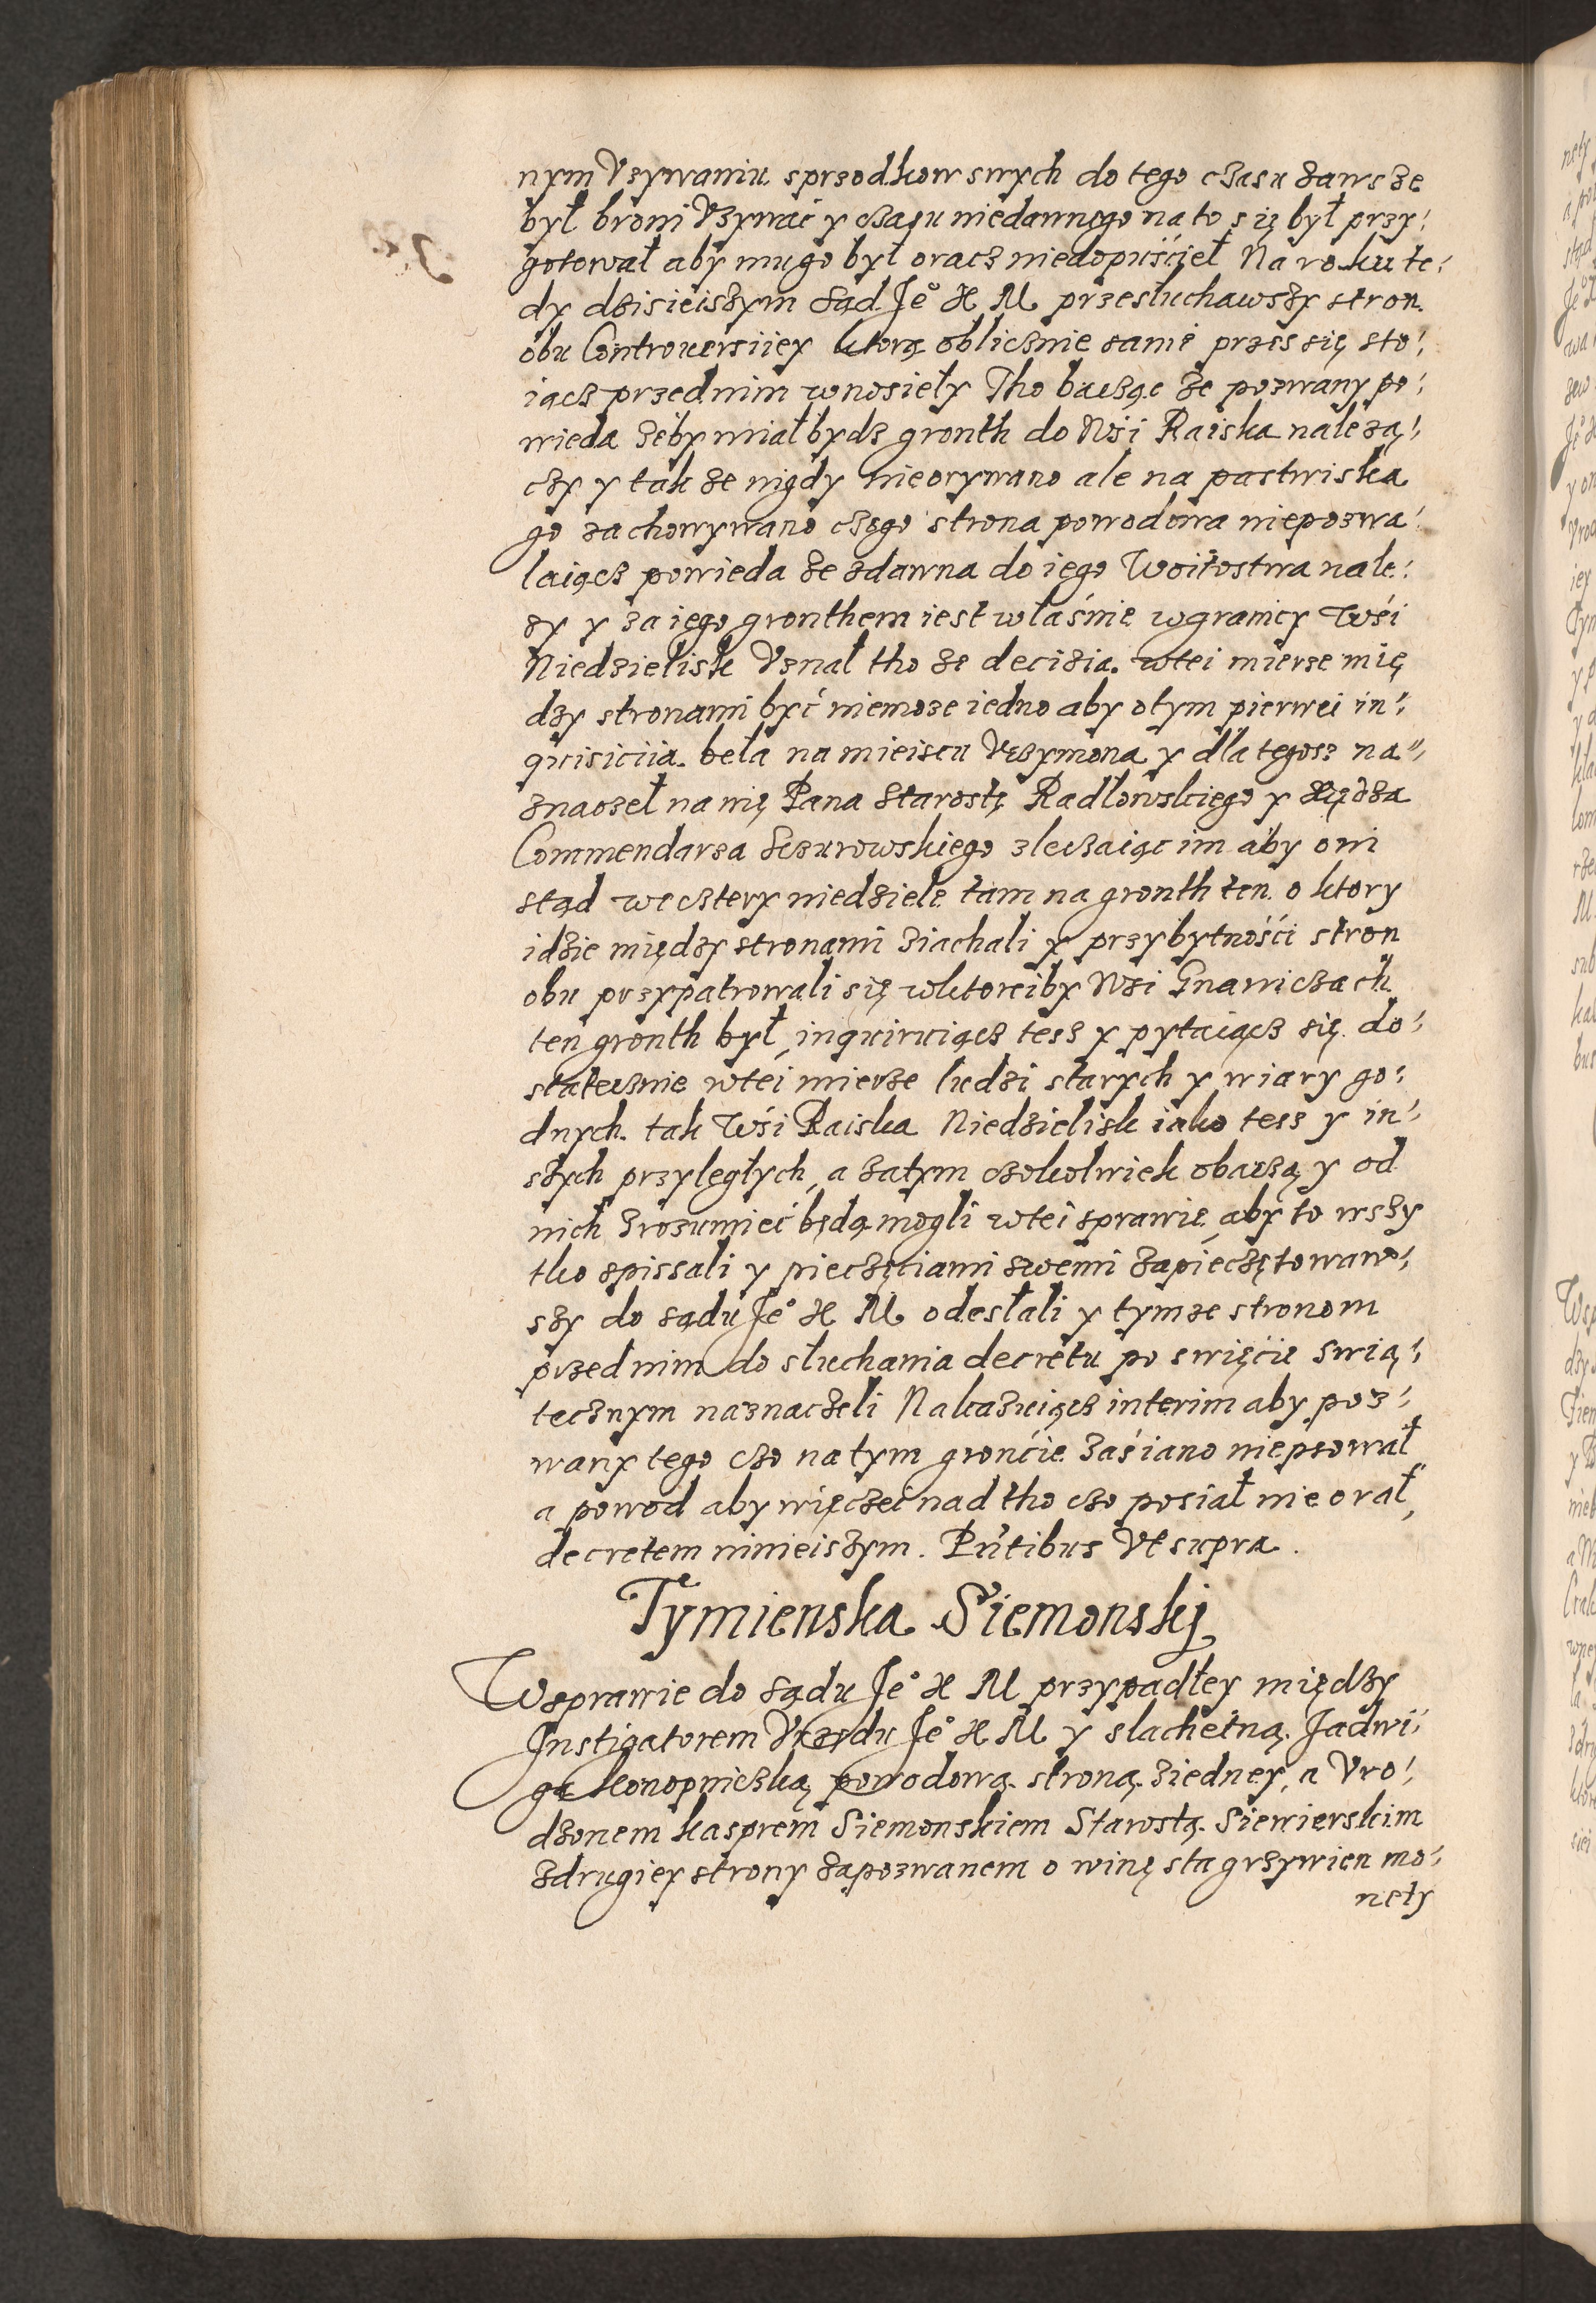 nym Vzywaniu sprzodkow swych do tego czasu zawsze
był broni Vzywać y czasu niedawnego na to się był przy:
gotował aby mu go był oracz niedopuścieł Na roku te:
dy dzisieiszym Sąd Je° X M przesłuchawszy stron
obu Controuersiiey ktorą oblicznie sami przes się sto:
iącz przed nim wnosieły Tho bacząc że pozwany po:
wieda żeby miał bydz gronth do Wsi Raiska należą:
czy y tak że nigdy nieorywano ale na pastwiska
go zachowywano czego strona powodowa niepozwa:
laiącz powieda że zdawna do iego Woitostwa nale:
zy y za iego gronthem iest własnie wgranicy Wsi
Niedzielisk Vznał tho że decizia wtei mierze mię
dzy stronami być niemoże iedno aby otym pierwei in:
quisiciia beła na mieiscu Vczymona y dla tegosz na:
znaczeł na nię Pana Starostę Radłowskiego y Xiędza
Commendarza Szczurowskiego zleczaiąc im aby oni
stąd we cztery niedziele tam na gronth ten o ktory
idzie między stronami ziachali y przybytności stron
obu przypatrowali się wktoreiby Wsi Gnaniczach
ten gronth był, inquiruiącz tesz y pytaiącz się do:
statecznie wtei mierze ludzi starych y wiary go:
dnych tak Wsi Raiska Niedzielisk iako tesz y in:
szych przyległych, a zatym czokolwiek obaczą y od
nich zrozumieć będą mogli wtei sprawie, aby to wszy
tko spissali y pieczęciami swemi zapieczętowaw:
szy do sądu Je° X M odesłali y tymze stronom
przed nim do słuchania decretu po swięcie Swią:
tecznym naznaczeli Nakazuiącz interim aby poz:
wany tego czo na tym gronćie zaśiano niepsował
a powod aby więczei nad tho czo posiał nie orał,
decretem ninieiszym. Pntibus Vt supra.
Tymienska Siemonskj
Wsprawie do sądu Je° X M przypadłey między
Jnstigatorem Vrzędu Je° X M y slachetną Jadwi:
gą Konopniczką powodową stroną ziedney, a Vro:
dzonem Kasprem Siemonskiem Starostą Siewierskim
zdrugiey strony zapozwanem o winę sta grzywien mo:
nety